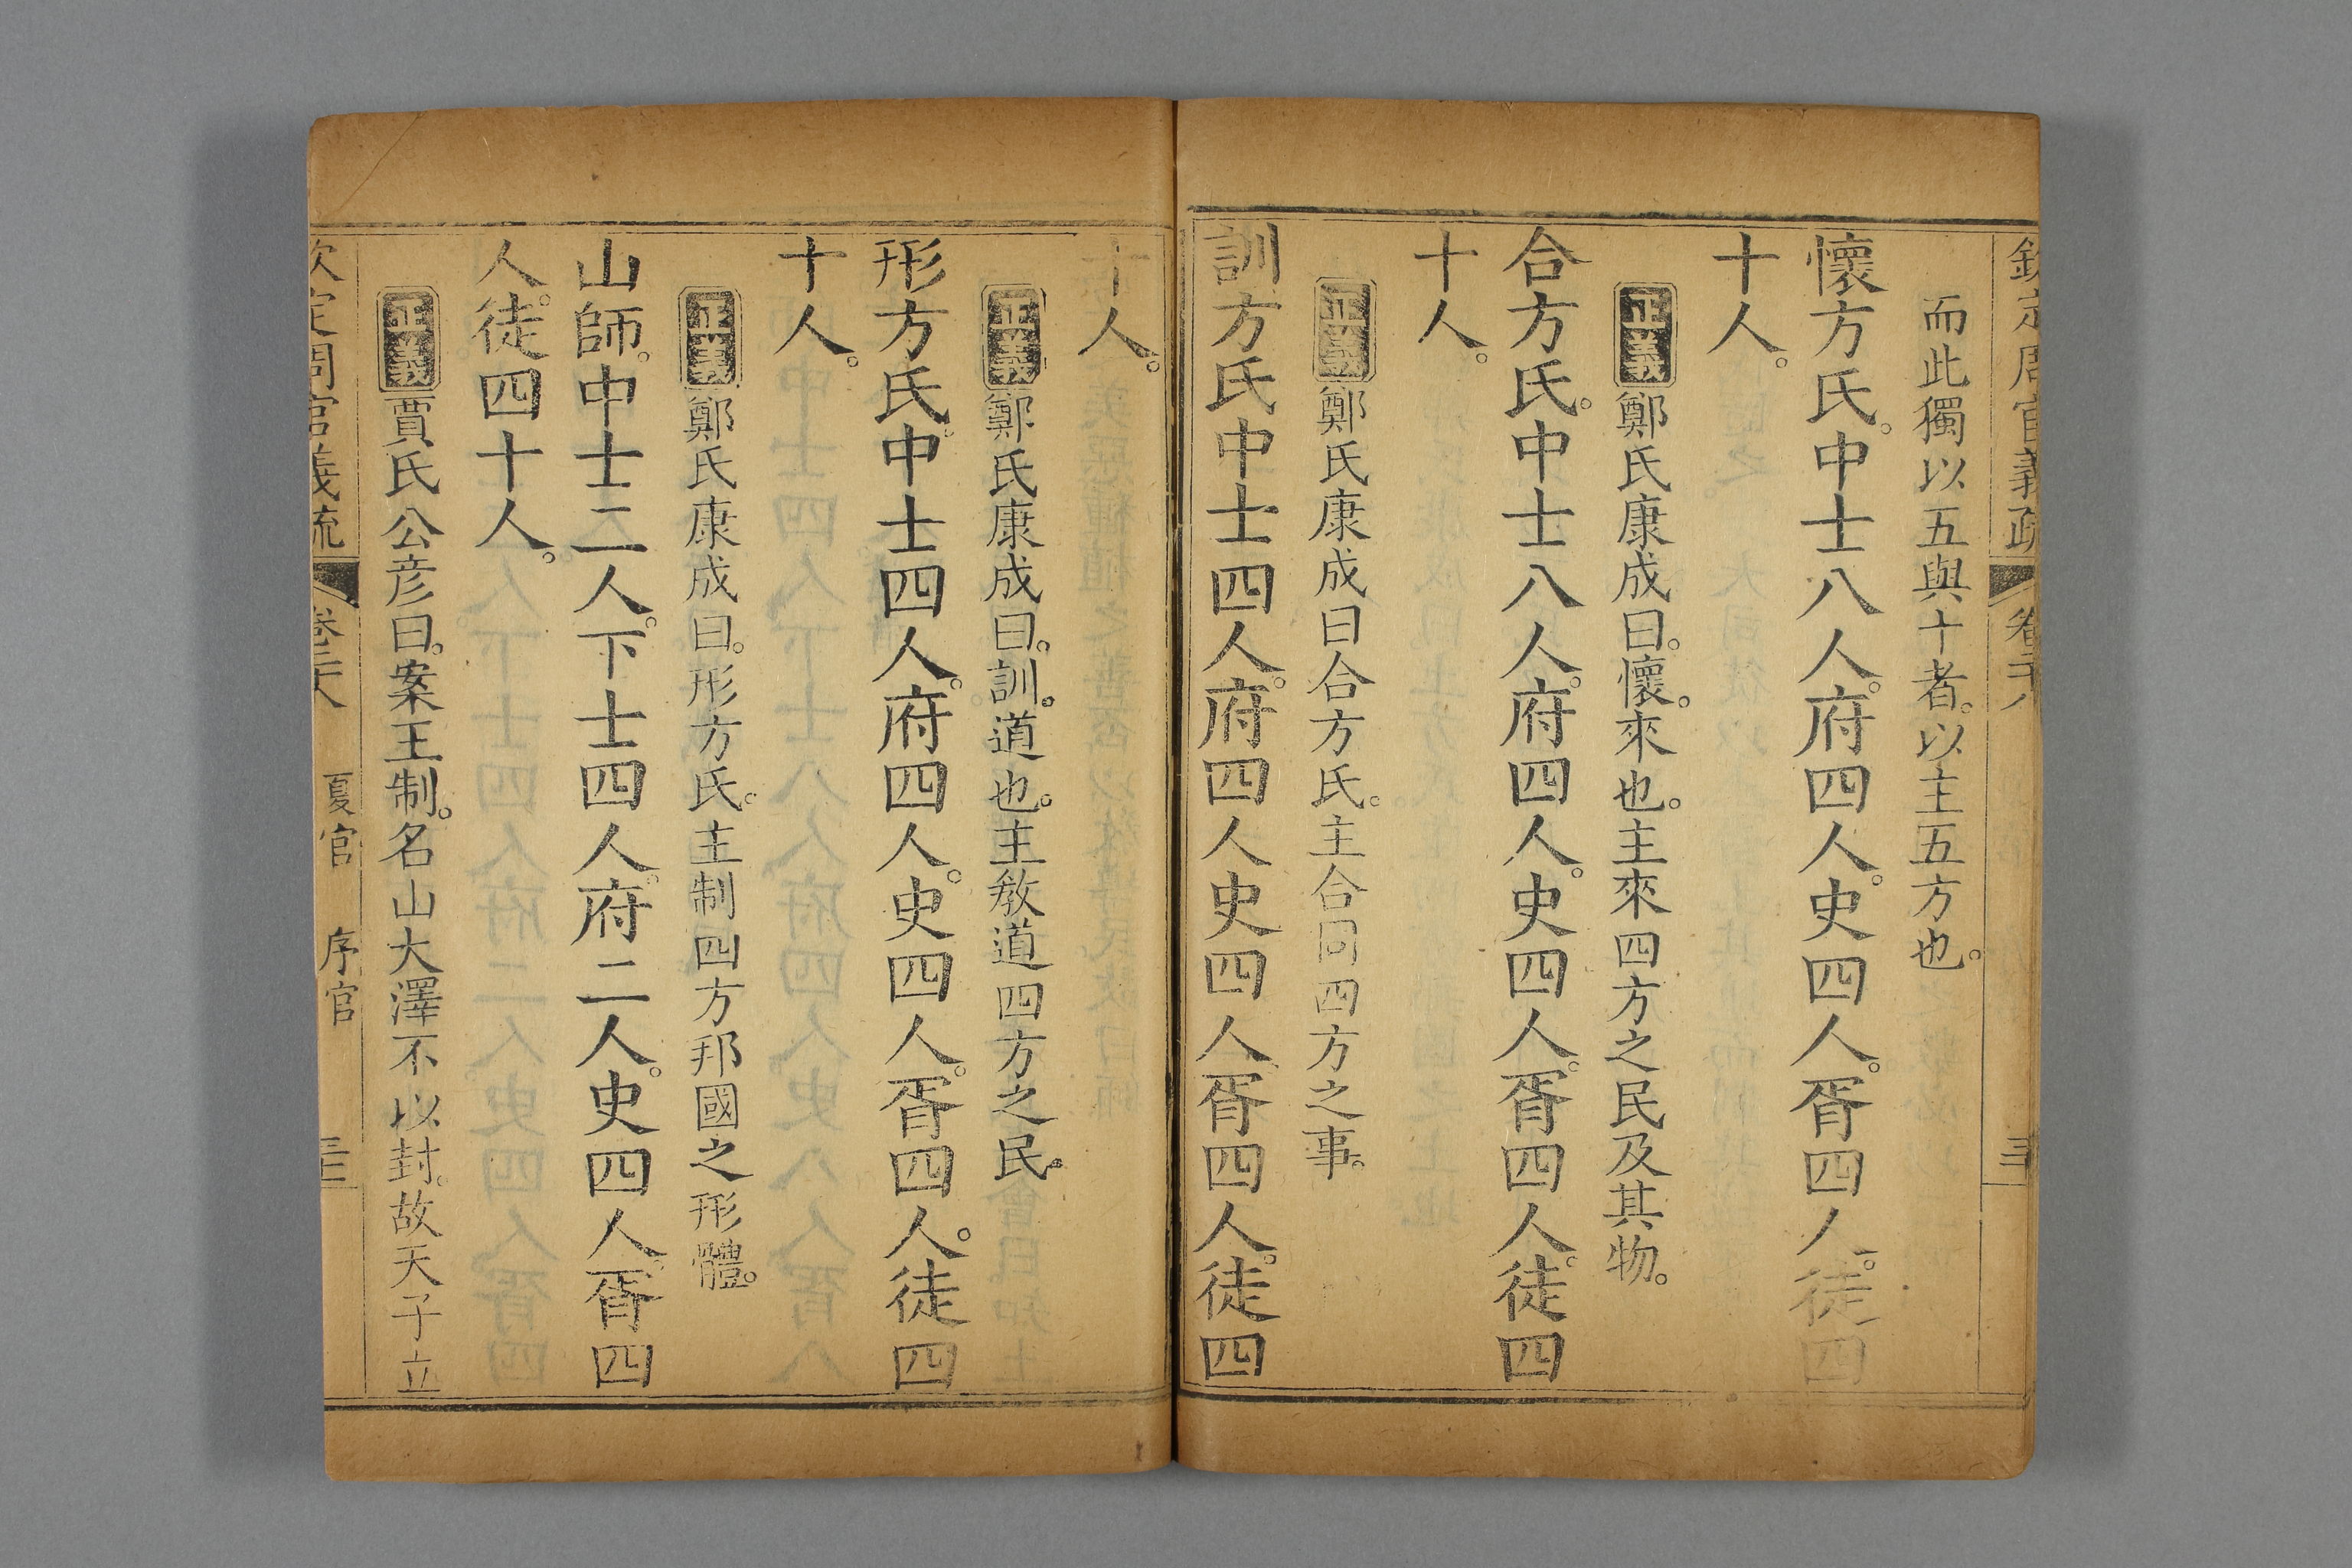 欽定周官義疏 卷二十八
而此獨以五與十者。以主五方也。
懷方氏。中士八人。府四人。史四人。胥四人。徒四
十人。
正義鄭氏康成曰。懷。來也。主來四方之民及其物。
合方氏。中士八人。府四人。史四人。胥四人。徒四
十人。
正義鄭氏康成曰合方氏。主合同四方之事。
訓方氏中士四人。府四人史四人胥四人。徒四
十人。
正義鄭氏康成曰。訓。道也。主敎道四方之民。
形方氏。中士四人。府四人。史四人。胥四人。徒四
十人。
正義鄭氏康成曰。形方氏。主制四方邦國之形體。
山師。中士二人。下士四人。府二人。史四人。胥四
人。徒四十人。
正義賈氏公彦曰。案王制。名山大澤不以封。故天子立
欽定周官義疏 卷二十八 夏官 序官